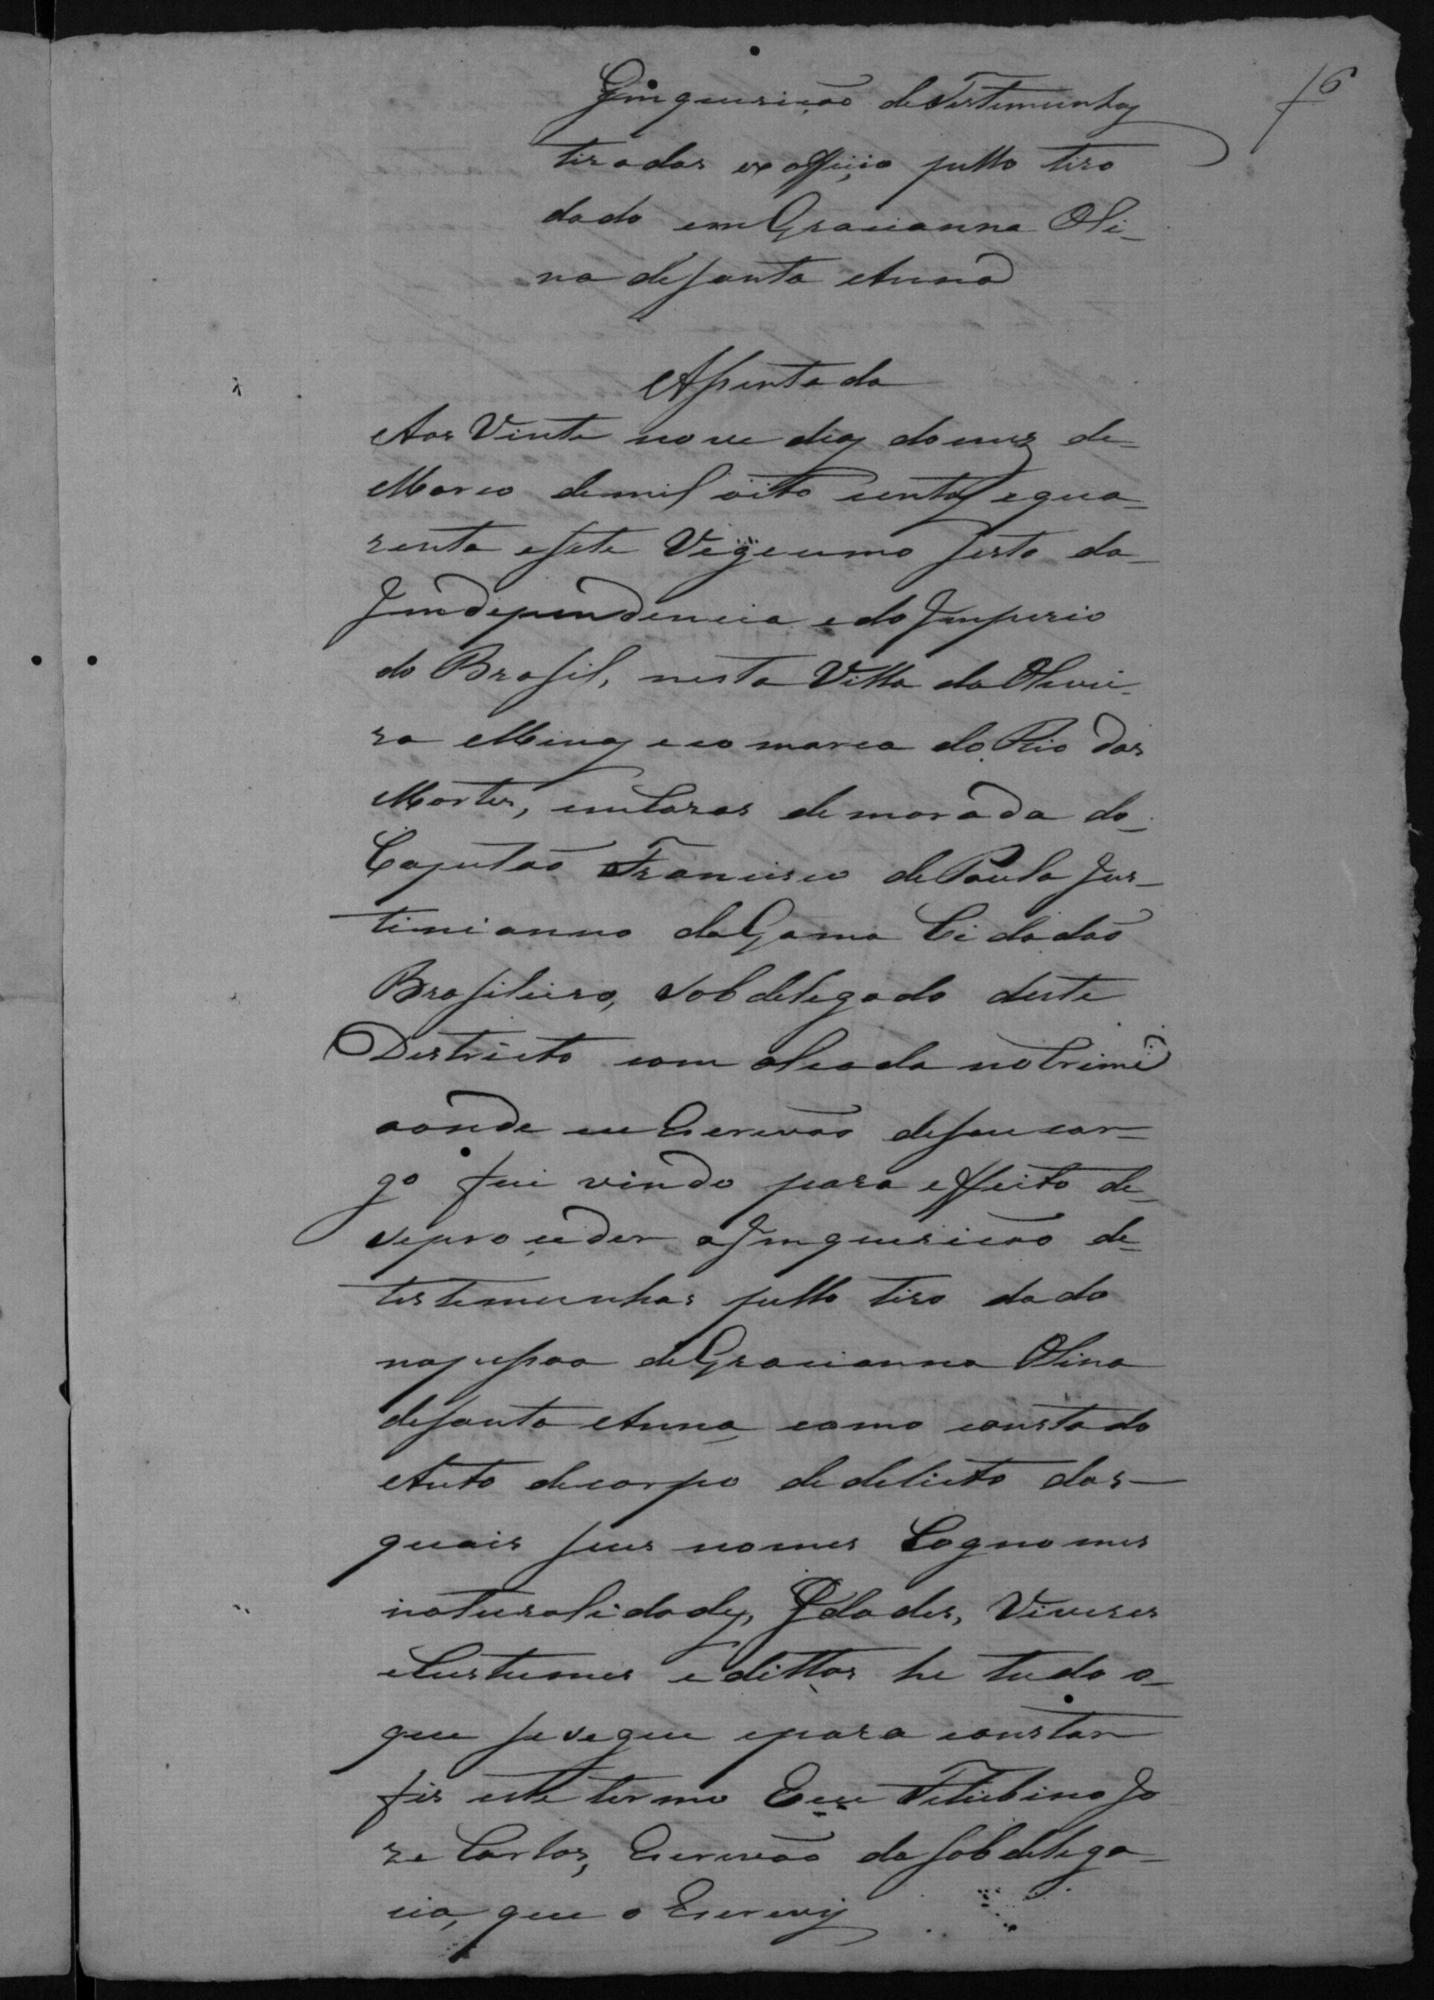 6
Jnquirição de Testemunhas
tiradas ex officio pello tiro
dado em Gracianna Oli-
na de santa Anna
Assentada
Aos Vinte nove dias do mez de
Março de mil oito centos e qua-
renta e sete Vigecimo sesto da
Jndependencia e do Jmperio
do Brasil, nesta Villa da Olivei-
ra Minas e comarca do Rio das
Mortes, em Cazas de morada do
Capitão Francisco de Paula Jus-
tinianno da Gama Cidadão
Brasileiro, Sobdelegado deste
Districto com alçada no Crime
aonde eu Escrivão de seu car-
go fui vindo para effeito de
se proceder a Jnquirição de
testemunhas pello tiro dado
na pessoa de Gracianna Olina
de santa Anna, como consta do
Auto de corpo de delicto das
quais seus nomes Cognomes
naturalidades, Jdades, Viveres
Custumes e dittos he tudo o
que se segue e para constar
fis este termo Eu Jo
ze Carlos, Escrivão da sobdelega-
cia, que o Escrevy